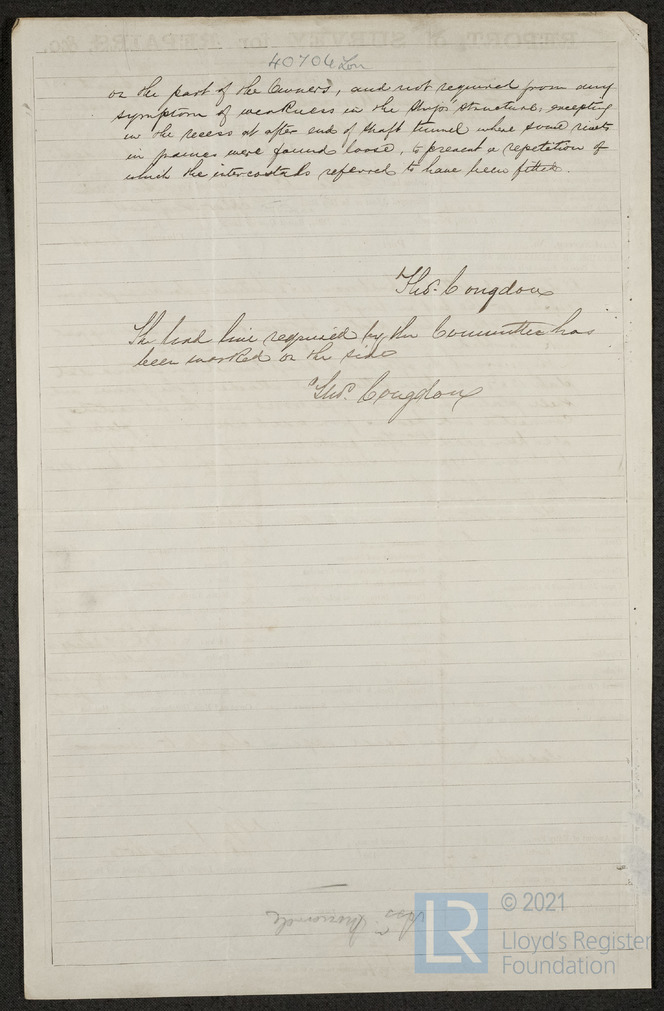 40706 Lon
on the part of the Owners, and not required from any
symptom of weakness in the ships' structure, excepting
in the recess at after end of shaft tunnel where some rivets
in frames were found loose, to prevent a repetition of
which the intercostals referred to have been fitted.
Thos. Congdon
The load line required by the Committee has
been marked on the side
Thos. Congdon
LR
© 2021
Lloyd's Register
Foundation